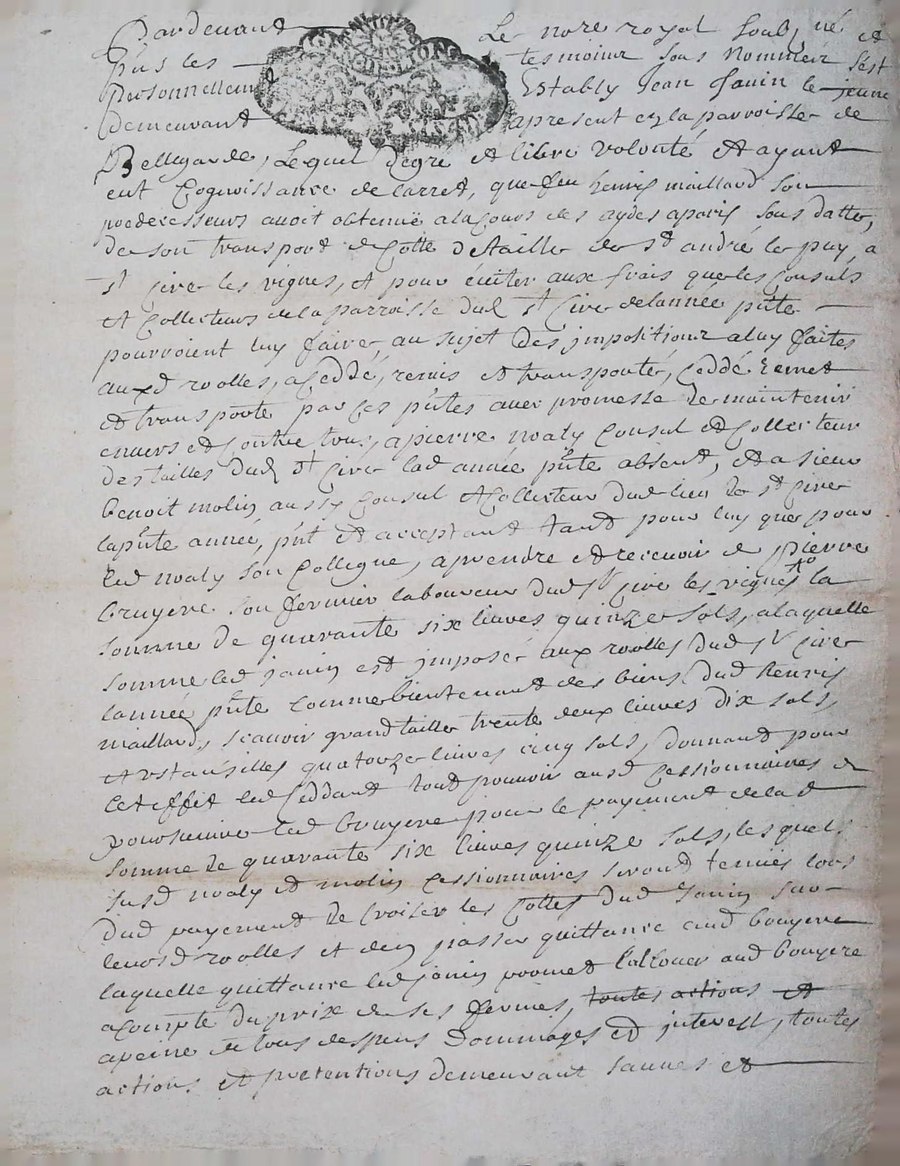 Pardevant Le nore royal soubz né et
pñs les tesmoins sous nommez s'est
personnellemt Estably Jean Janin le jeune
demeurant apresent en la parroisse de
Bellegarde, Lequel degré et libre volonté et ayant
eut Cognoissance de larret, que feu henris maillard son
predecesseurs avoit obtenüe a la Cours des aydes a paris sous datte,
de son transport de Cotte de taille de st andré le puy, a
st Cire les vignes, et pour éviter aux frais que les Consuls
et Collecteurs de la parroisse dud st Cire de lannée pñte
pourroient luy faire, au sujet des impositions a luy faites
auxd roolles, a Ceddé, remis et transporté, Ceddé remet
et transporte par Ces pñtes avec promesse de maintenir
envers et Contre tous, a pierre noaly Consul et Collecteur
des tailles dud st Cire lad année pñte absent, et a sieur
benoit molin aussy Consul et Collecteur dud lieu de st Cire
la pñte année, pñt et acceptant tand pour luy que pour
led noaly son Collegue, a prendre et recevoir de pierre
bruyere son fermier laboureur dud st Cire les vignes la
somme de quarante six livres quinze sols, a laquelle
somme led janin est imposé aux roolles dud st Cire
lannée pñte comme bientenant des biens dud henris
maillard, scavoir grand taille trente deux livres dix sols,
et ustansilles quatorze livres cinq sols, donnand pour
Cet effet led Ceddant tout pouvoir ausd Cessionnaires de
poursuivre led bruyere pour le payement de lad
somme de quarante six livres quinze sols, lesquels
susd noaly et molin Cessionnaires seront tenües lors
dud payement de Croiser les Cottes dud Janin sur
leursd roolles et den passer quittance aud bruyere
laquelle quittance led janin promet lallouer aud bruyere
a Compte du prix de ses fermes, toutes actions et
a peine de tous despens dommages et interest, toutes
actions et pretentions demeurant sauves et